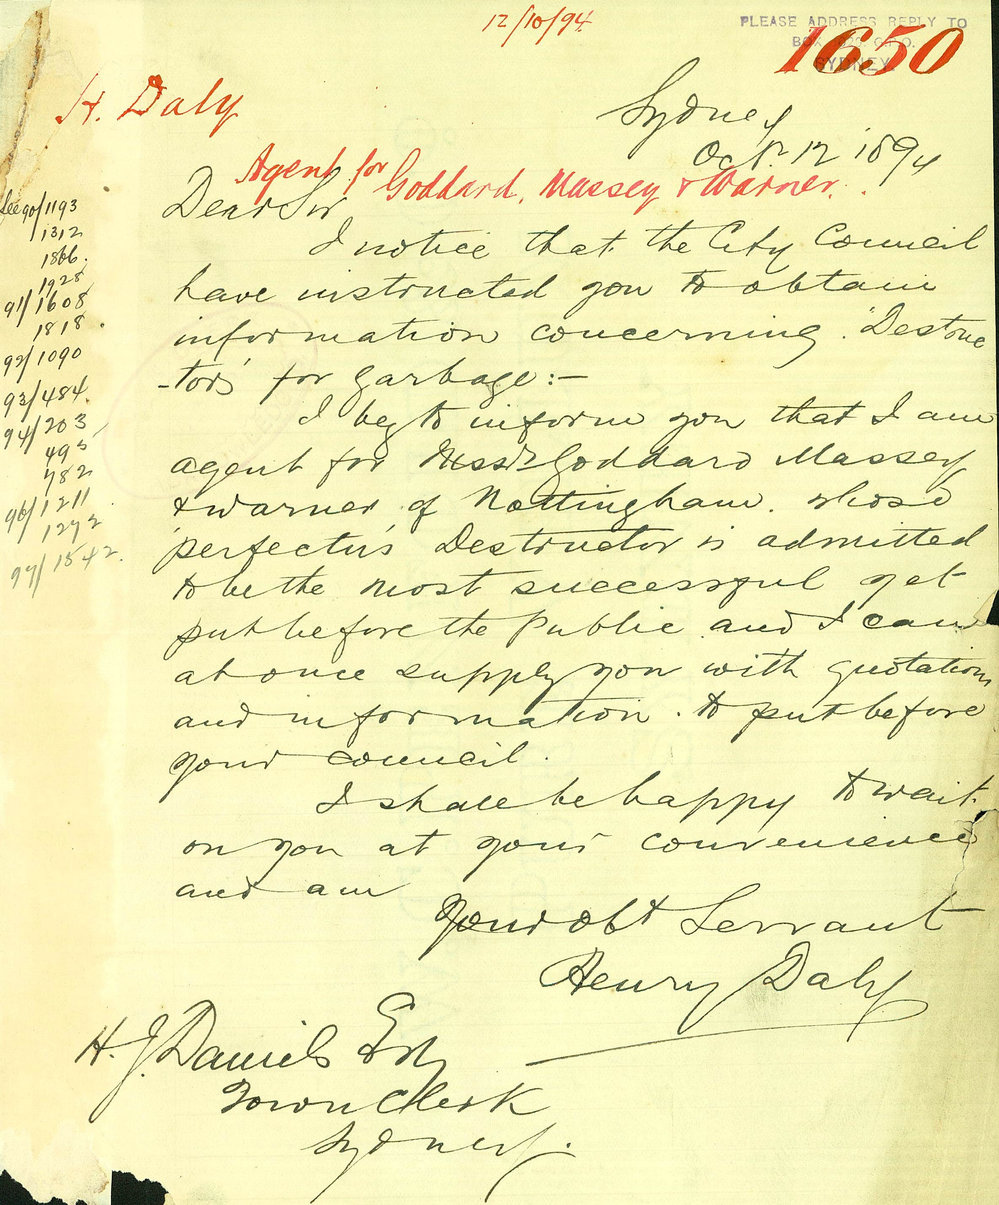 12/10/94
PLEASE ADDRESS REPLY TO
BOX
SYDNEY
1650
H. Daly
Sydney
Octr. 12 1894
Agent for Goddard, Massey & Warner.
Dear Sir
I notice that the City Council
have instructed you to obtain
information concerning "Destruc
-tors" for Garbage:-
I beg to inform you that I am
agent for Messrs Goddard Massey
& Warner of Nottingham. whose
'perfectus' Destructor is admitted
to be the most successful yet
put before the Public and I can
at once supply you with quotations
and information. to put before
your council.
I shall be happy to wait
on you at your convenience
and am
Your obt Servant
Henry Daly
H. J. Daniels Esq
Town Clerk
Sydney.
See 90/1193
1312
1866.
1928
91/1608
1818.
92/1090
93/484.
94/203
495
782
96/1211
1272
97/1542.